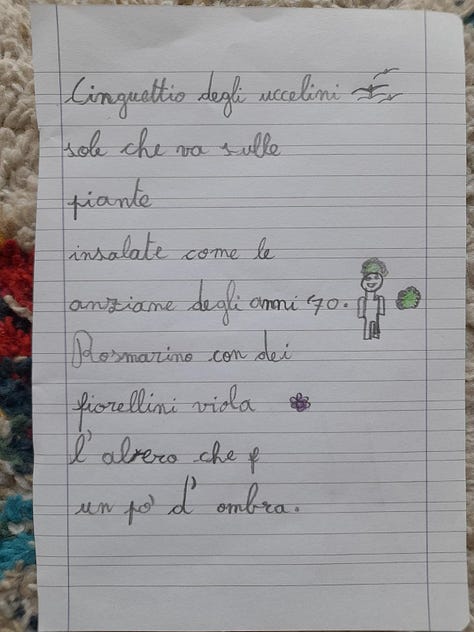 Cinguettio degli uccelini
sole che va sulle
piante
insalate come le
anziane degli anni '70.
Rosmarino con dei
fiorellini viola
l' albero che f
un pò d' ombra.